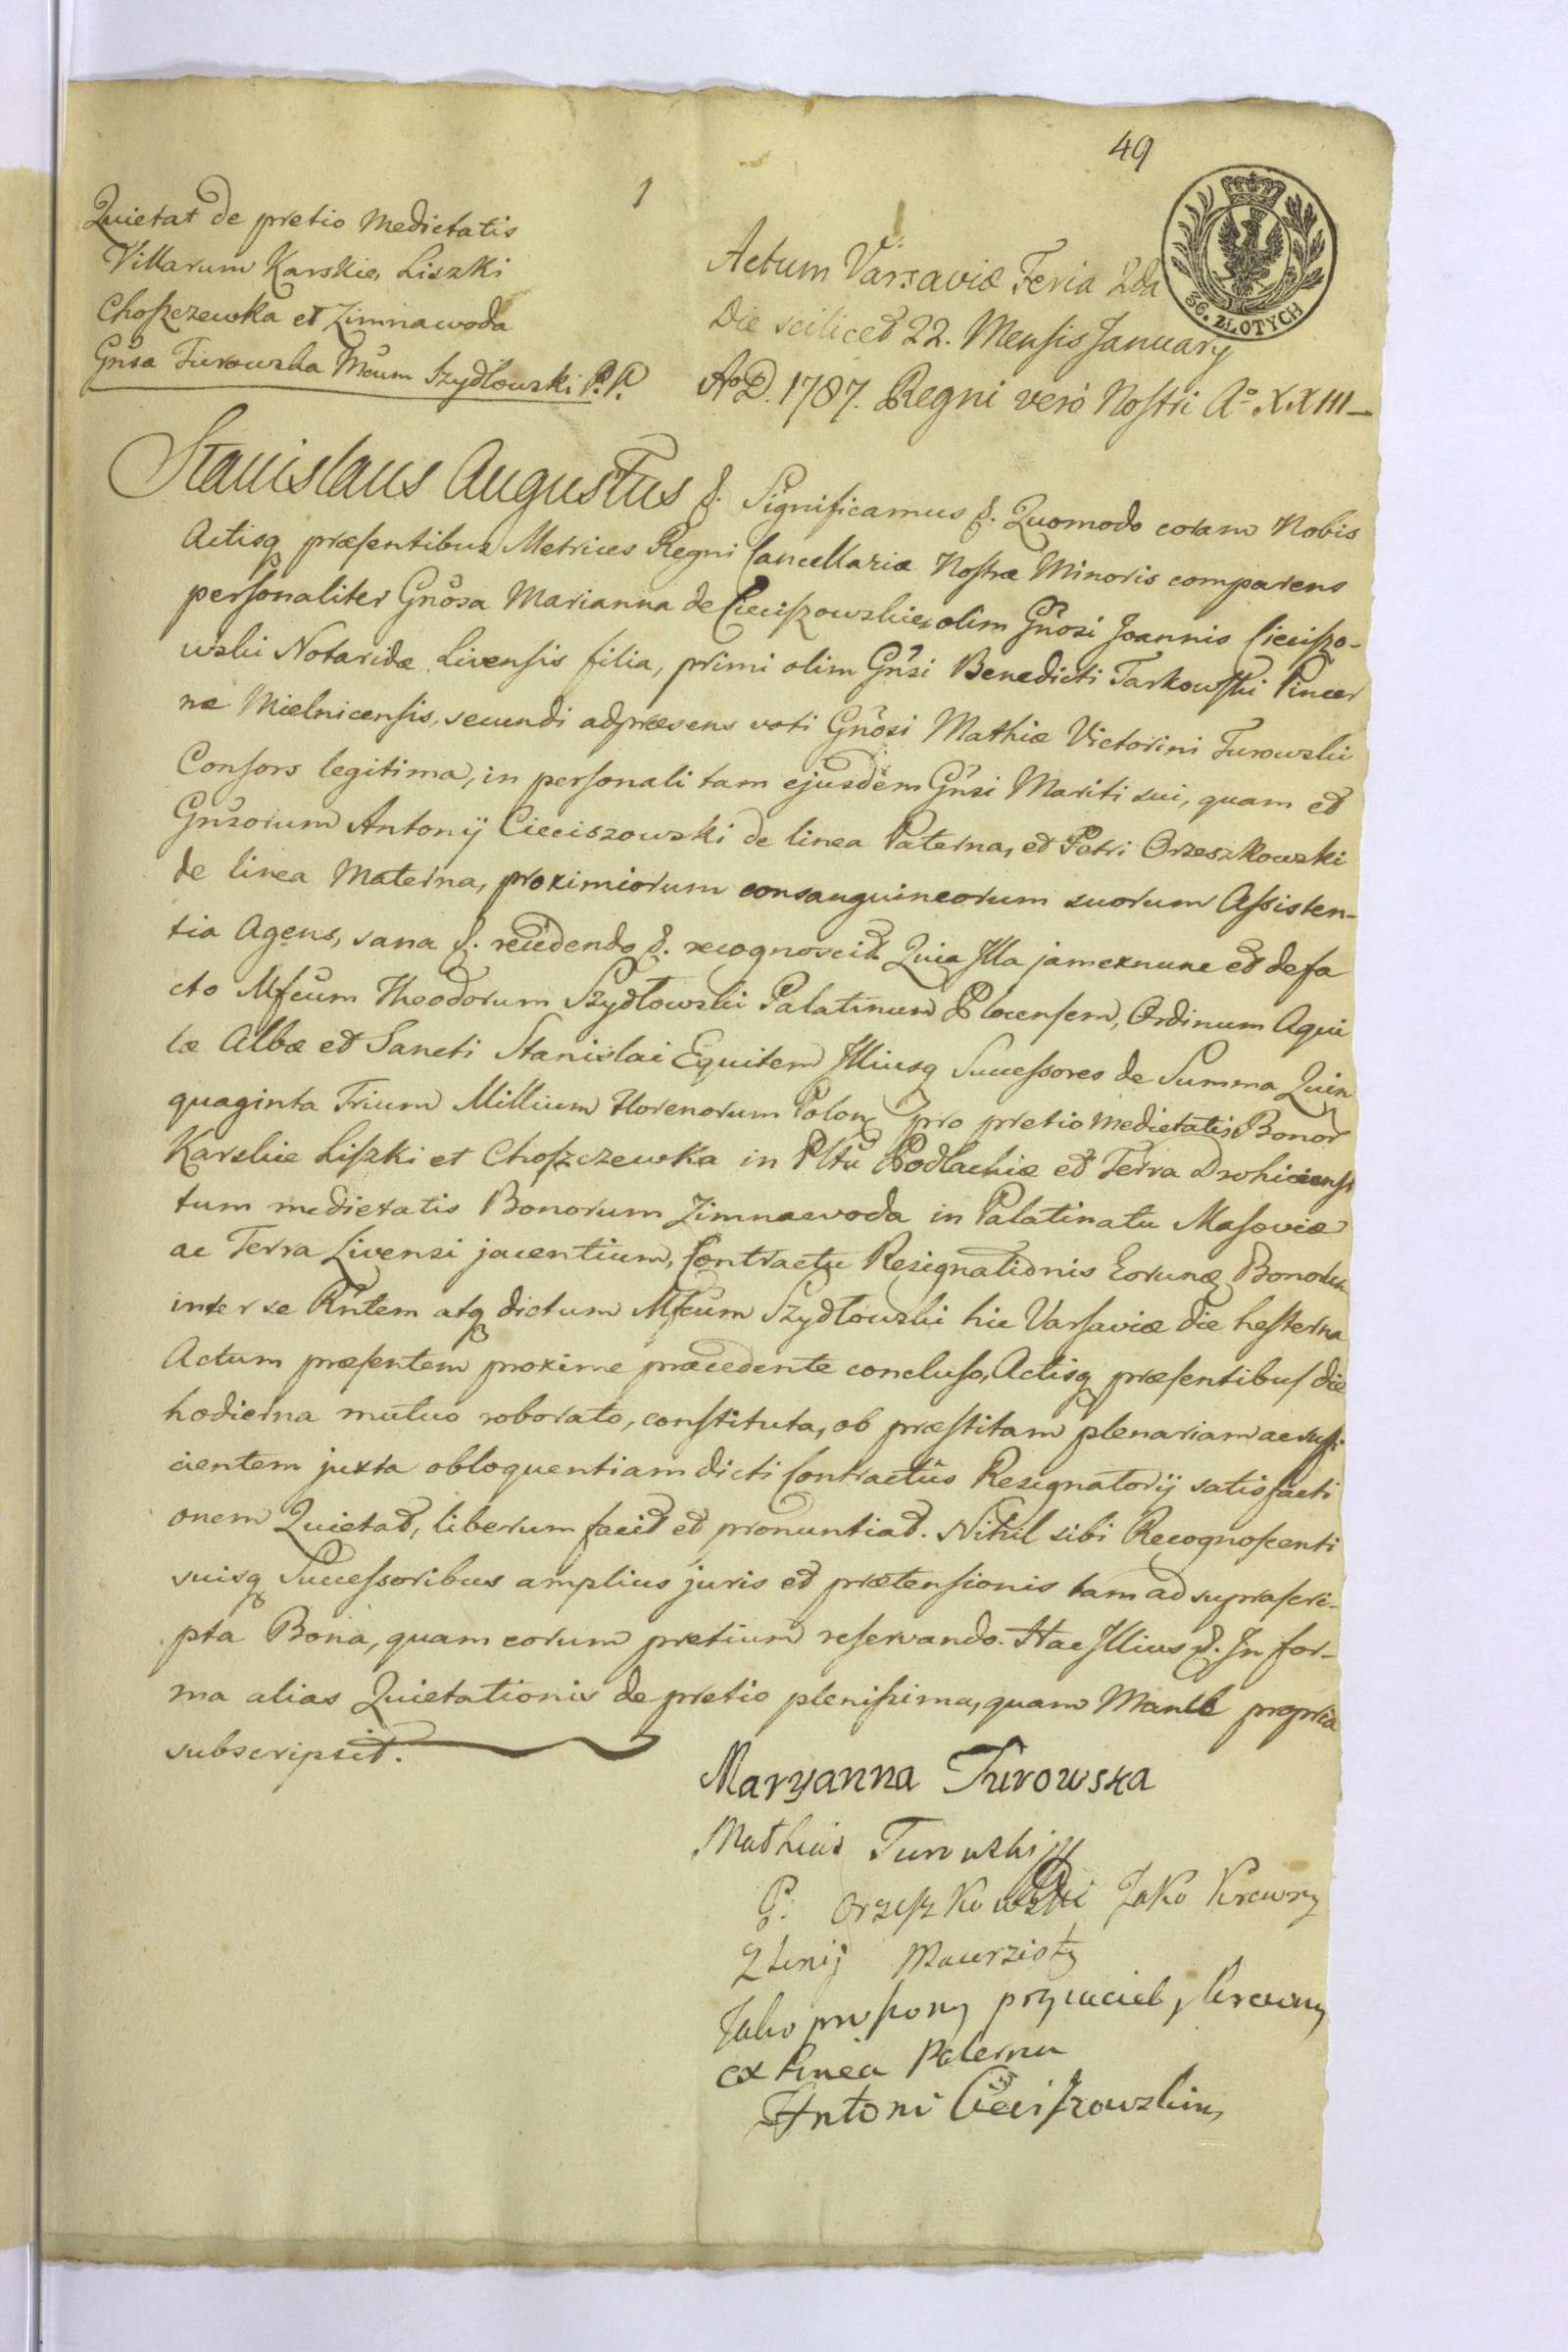 49
1
36. ZŁOTYCH
Quietat de pretio Medietatis
Villarum Karskie, Liszki
Choszczewka et Zimnawoda
Gnsa Turowska Mcum Szydłowski P. P.
Actum Varsaviæ Feria 2da
Die scilicet 22. Mensis January
Ao D. 1787. Regni verò Nostri Ao XXIII
Stanislaus Augustus &. Significamus &. Quomodo coram Nobis
Actisq præsentibus Metrices Regni Cancellariæ Nostræ Minoris comparens
personaliter Gnosa Marianna de Cieciszowskie olim Gnosi Joannis Cieciszo-
wski Notaridæ Livensis filia, primi olim Gnsi Benedicti Tarkowski Pincer
næ Mielnicensis, secundi adpræsens voti Gnosi Mathiæ Victorini Turowski
Consors legitima, in personali tam ejusdem Gnsi Mariti sui, quam et
Gnsorum Antonij Cieciszowski de linea Paterna, et Petri Orzeszkowski
de linea Materna, proximiorum consanguineorum suorum Assisten-
tia Agens, sana &. recedendo &. recognoscit. Quia Illa jamexnunc et defa
cto Mfcum Theodorum Szydłowski Palatinum Plocensem, Ordinum Aqui
læ Albæ et Sancti Stanislai Equitem Illiusq Successores de Summa Quin
quaginta Trium Millium Florenorum Polon pro pretio Medietatis Bonor
Karskie Liszki et Choszczewka in Pltu Podlachiæ et Terra Drohiciensi
tum medietatis Bonorum Zimnawoda in Palatinatu Masoviæ
ac Terra Livensi jacentium, Contractu Resignationis Eorunq Bonorum
inter se Rntem atq dictum Mfcum Szydłowski hic Varsaviæ die hesterna
Actum præsentem proxime præcedente concluso, Actisq præsentibus die
hodierna mutuo roborato, constituta, ob præstitam plenariam ac suffi
cientem juxta obloquentiam dicti Contractûs Resignatorij satisfacti
onem Quietat, liberum facit et pronuntiat. Nihil sibi Recognoscenti
suisq Successoribus amplius juris et prætensionis tam ad suprascri-
pta Bona, quam eorum pretium reservando. Hac Illius &. In for-
ma alias Quietationis de pretio plenissima, quam Manu propria
subscripsit.
Maryanna Turowska
Mathias Turowski
P. Orzeszkowski Jako Krewny
Z Linij Macierzistÿ
Jako proszony przyiaciel y Krewny
ex linea Paterna
Antoni Cieciszowski